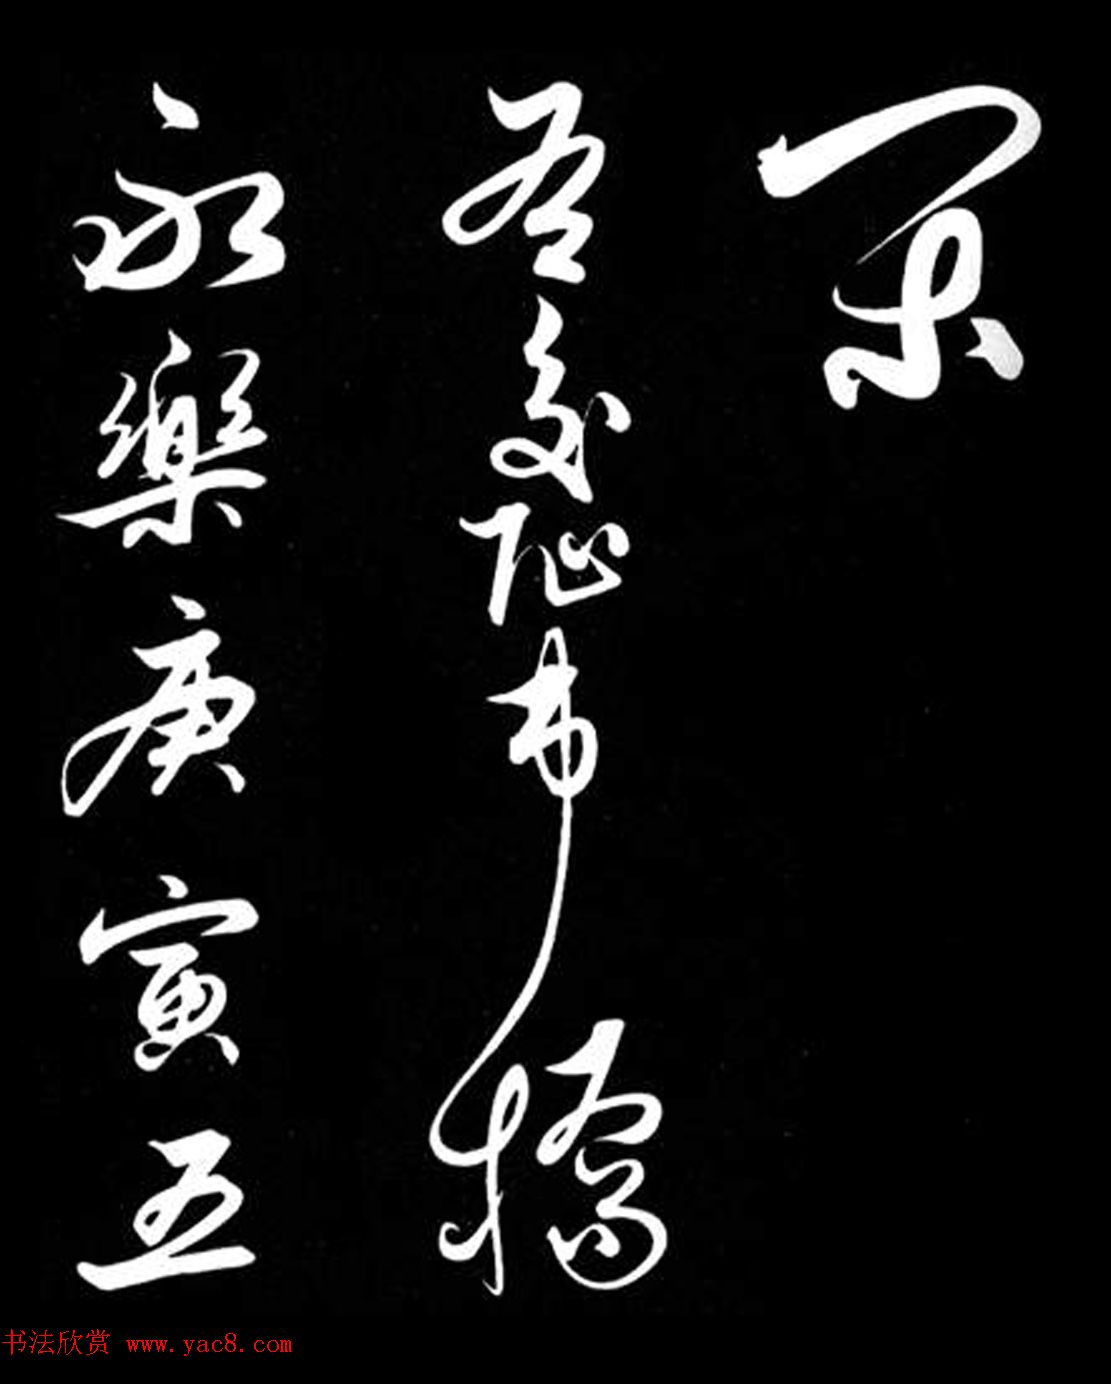 吾交阯市橋
永樂庚寅五
书法欣赏 www.yac8.com